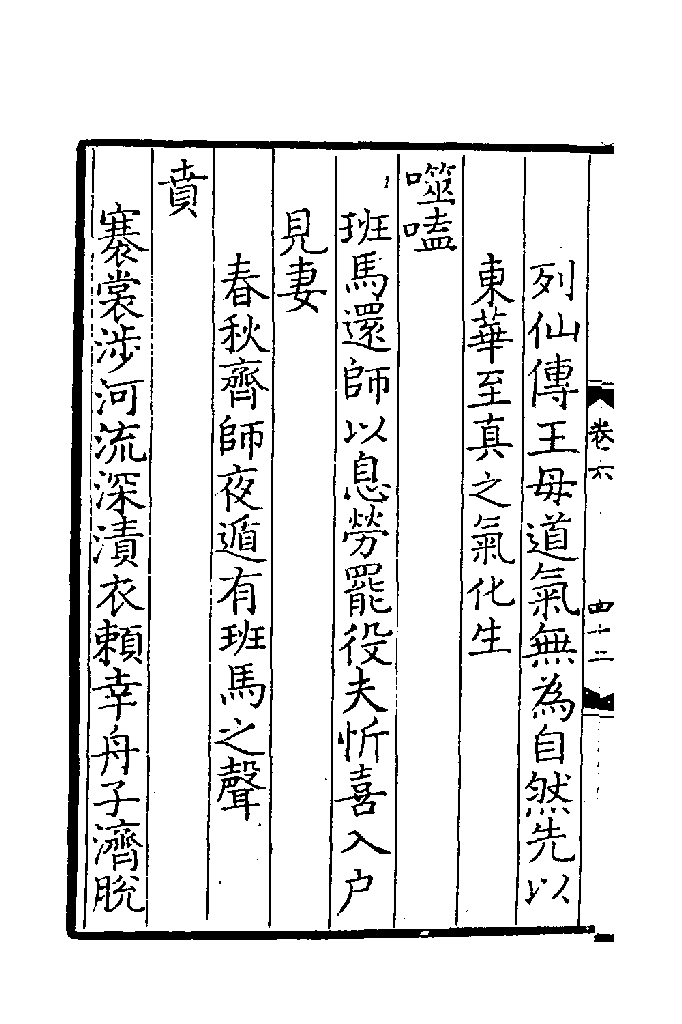 卷六
四十二
列仙傳王母道氣無為自然先以
東華至真之氣化生
噬嗑
班馬還師以息勞罷役夫忻喜入户
見妻
春秋齊師夜遁有班馬之聲
賁
褰裳涉河流深漬衣賴幸舟子濟脫